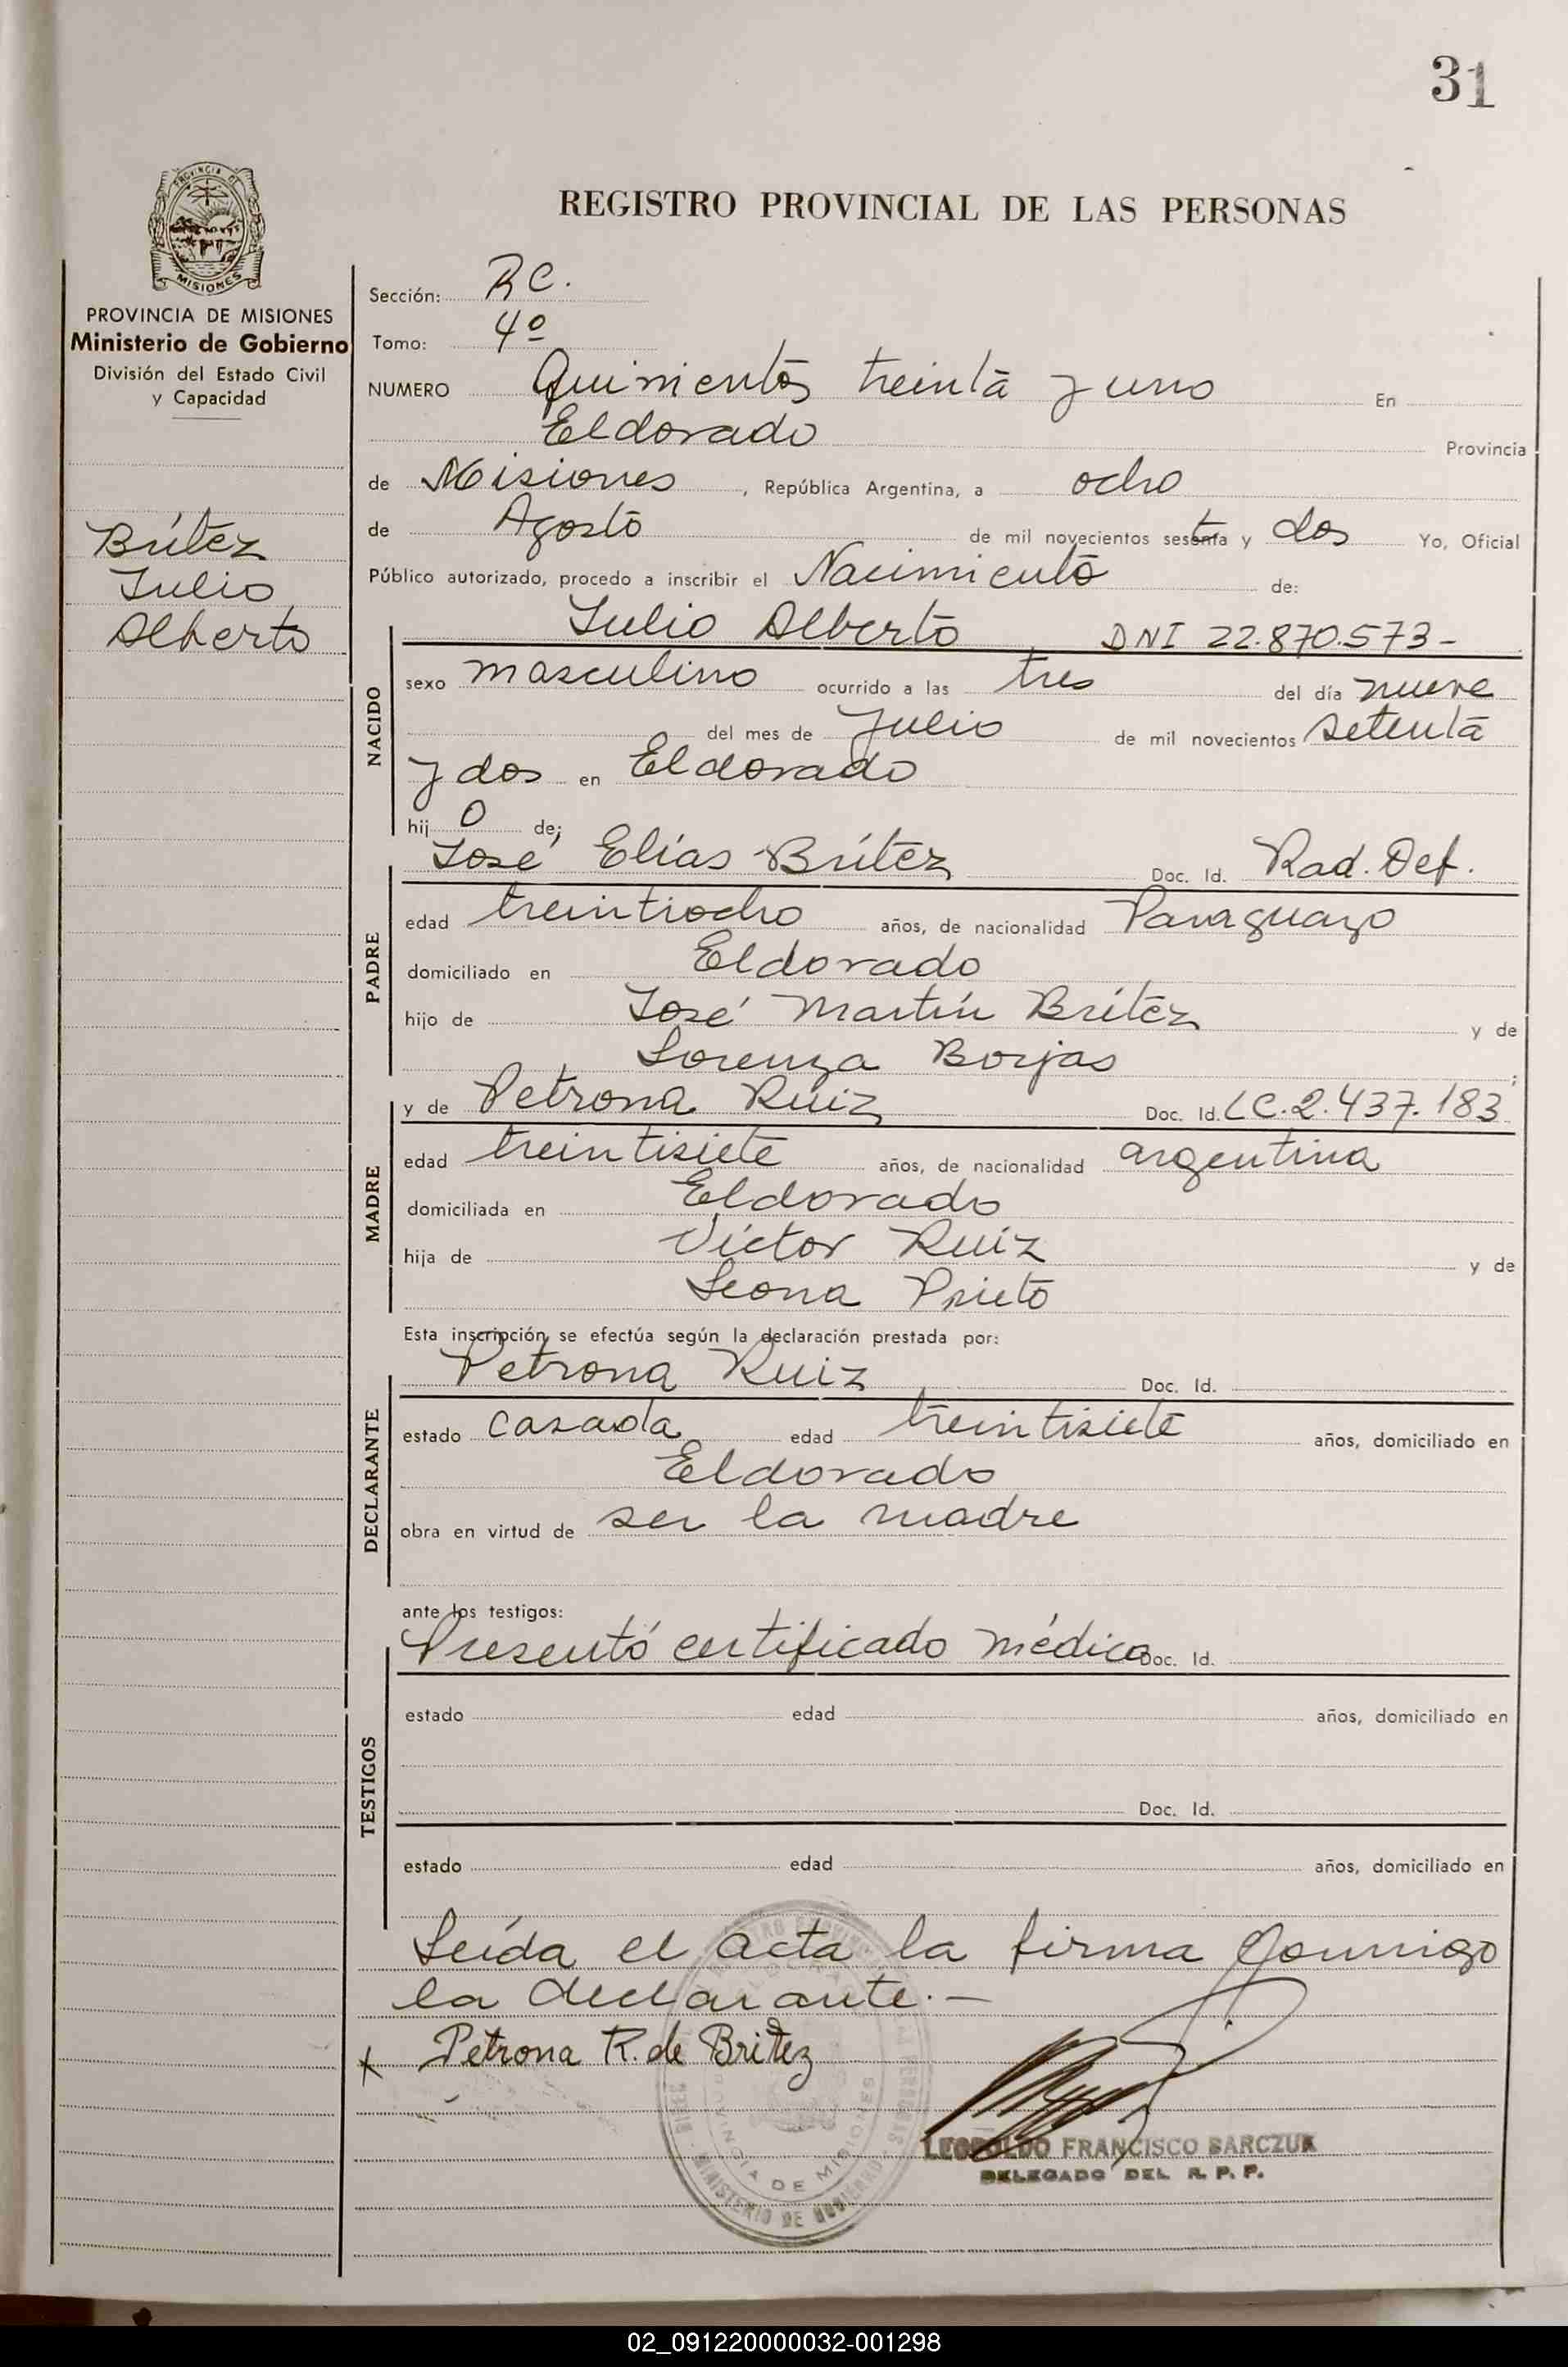 31
PROVINCIA DE
MISIONES
PROVINCIA DE MISIONES
Ministerio de Gobierno
División del Estado Civil
y Capacidad
Brítez
Julio
Alberto
REGISTRO PROVINCIAL DE LAS PERSONAS
Sección: RC.
Tomo: 4º
NUMERO Quinientos treinta y uno En
Eldorado Provincia
de Misiones, República Argentina, a ocho
de Agosto de mil novecientos setenta y dos Yo, Oficial
Público autorizado, procedo a inscribir el Nacimiento de:
Julio Alberto DNI 22.870.573-
NACIDO
sexo masculino ocurrido a las tres del día nueve
del mes de Julio de mil novecientos setenta
y dos en Eldorado
hij o de;
José Elías Brítez Doc. Id. Rad. Def.
PADRE
edad treintiocho años, de nacionalidad Paraguayo
domiciliado en Eldorado
hijo de José Martín Brítez y de
Lorenza Borjas ;
y de Petrona Ruiz Doc. Id. LC.2.437.183
MADRE
edad treintisiete años, de nacionalidad argentina
domiciliada en Eldorado
hija de Víctor Ruíz y de
Leona Prieto
Esta inscripción se efectúa según la declaración prestada por:
Petrona Ruiz Doc. Id.
DECLARANTE
estado casada edad treintisiete años, domiciliado en
Eldorado
obra en virtud de ser la madre
ante los testigos:
Presentó certificado médico Doc. Id.
TESTIGOS
estado edad años, domiciliado en
Doc. Id.
estado edad años, domiciliado en
Leída el acta la firma conmigo
la declarante.-
x Petrona R. de Britez
LEOPOLDO FRANCISCO BARCZUK
DELEGADO DEL R. P. P.
PROVINCIA DE MISIONES
MINISTERIO DE GOBIERNO
02_091220000032-001298